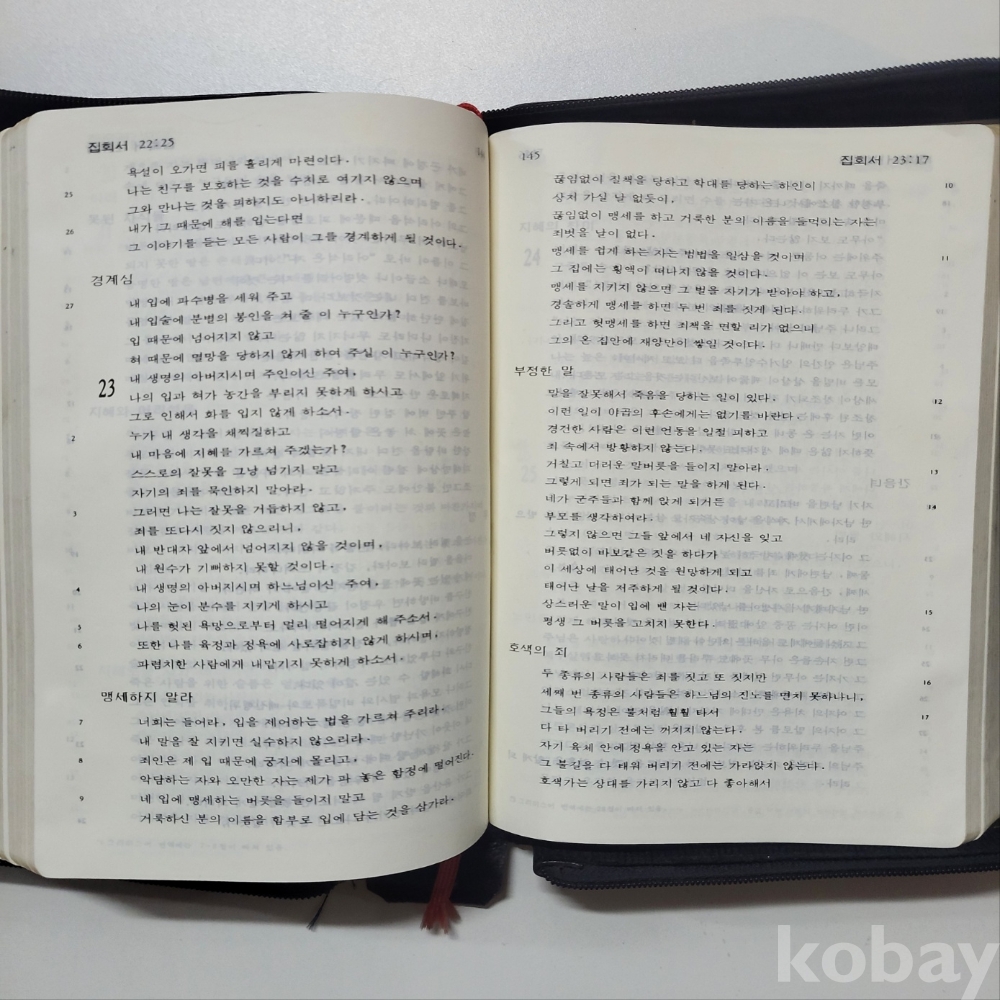 집회서 22:25
욕설이 오가면 피를 흘리게 마련이다.
25 나는 친구를 보호하는 것을 수치로 여기지 않으며
그와 만나는 것을 피하지도 아니하리라.
26 내가 그 때문에 해를 입는다면
그 이야기를 듣는 모든 사람이 그를 경계하게 될 것이다.
경계심
27 내 입에 파수병을 세워 주고
내 입술에 분별의 봉인을 쳐 줄 이 누구인가?
입 때문에 넘어지지 않고
혀 때문에 멸망을 당하지 않게 하여 주실 이 누구인가?
23 내 생명의 아버지시며 주인이신 주여,
나의 입과 혀가 농간을 부리지 못하게 하시고
그로 인해서 화를 입지 않게 하소서.
2 누가 내 생각을 채찍질하고
내 마음에 지혜를 가르쳐 주겠는가?
스스로의 잘못을 그냥 넘기지 말고
자기의 죄를 묵인하지 말아라.
3 그러면 나는 잘못을 거듭하지 않고,
죄를 또다시 짓지 않으리니,
내 반대자 앞에서 넘어지지 않을 것이며,
내 원수가 기뻐하지 못할 것이다.
4 내 생명의 아버지시며 하느님이신 주여,
나의 눈이 분수를 지키게 하시고
5 나를 헛된 욕망으로부터 멀리 떨어지게 해 주소서.
6 또한 나를 육정과 정욕에 사로잡히지 않게 하시며,
파렴치한 사람에게 내맡기지 못하게 하소서.
맹세하지 말라
7 너희는 들어라, 입을 제어하는 법을 가르쳐 주리라.
내 말을 잘 지키면 실수하지 않으리라.
8 죄인은 제 입 때문에 궁지에 몰리고,
악담하는 자와 오만한 자는 제가 파 놓은 함정에 떨어진다.
9 네 입에 맹세하는 버릇을 들이지 말고
거룩하신 분의 이름을 함부로 입에 담는 것을 삼가라.
145 집회서 23:17
끊임없이 질책을 당하고 학대를 당하는 하인이 10
상처 가실 날 없듯이,
끊임없이 맹세를 하고 거룩한 분의 이름을 들먹이는 자는
죄벗을 날이 없다.
맹세를 쉽게 하는 자는 범법을 일삼을 것이며 11
그 집에는 횡액이 떠나지 않을 것이다.
맹세를 지키지 않으면 그 벌을 자기가 받아야 하고,
경솔하게 맹세를 하면 두 번 죄를 짓게 된다.
그리고 헛맹세를 하면 죄책을 면할 리가 없으니
그의 온 집안에 재앙만이 쌓일 것이다.
부정한 말
말을 잘못해서 죽음을 당하는 일이 있다. 12
이런 일이 야곱의 후손에게는 없기를 바란다.
경건한 사람은 이런 언동을 일절 피하고
죄 속에서 방황하지 않는다.
거칠고 더러운 말버릇을 들이지 말아라. 13
그렇게 되면 죄가 되는 말을 하게 된다.
네가 군주들과 함께 앉게 되거든 14
부모를 생각하여라.
그렇지 않으면 그들 앞에서 네 자신을 잊고
버릇없이 바보같은 짓을 하다가
이 세상에 태어난 것을 원망하게 되고
태어난 날을 저주하게 될 것이다.
상스러운 말이 입에 밴 자는 15
평생 그 버릇을 고치지 못한다.
호색의 죄
두 종류의 사람들은 죄를 짓고 또 짓지만 16
세째 번 종류의 사람들은 하느님의 진노를 면치 못하나니,
그들의 욕정은 불처럼 훨훨 타서 17
다 타 버리기 전에는 꺼지지 않는다.
자기 육체 안에 정욕을 안고 있는 자는
그 불길을 다 태워 버리기 전에는 가라앉지 않는다.
호색가는 상대를 가리지 않고 다 좋아해서
kobay